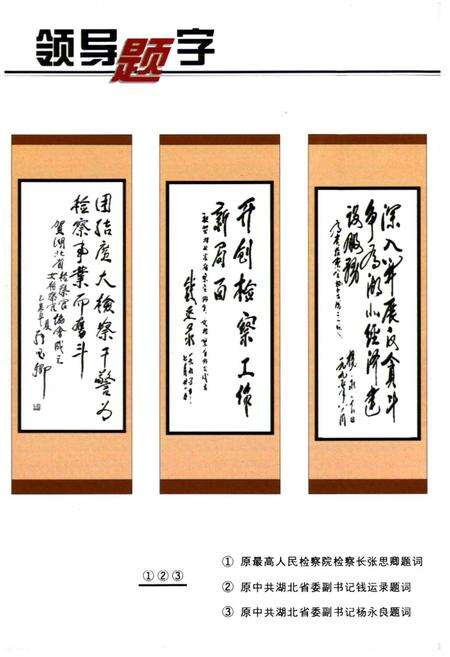 领导题字
团结广大检察干警为
检察事业而奋斗
贺湖北省检察官
女检察官协会成立
开创检察工作
新局面
钱运录
深入开展反贪斗
争为湖北经济建
设服务
一九九五年八月
①②③
① 原最高人民检察院检察长张思卿题词
② 原中共湖北省委副书记钱运录题词
③ 原中共湖北省委副书记杨永良题词